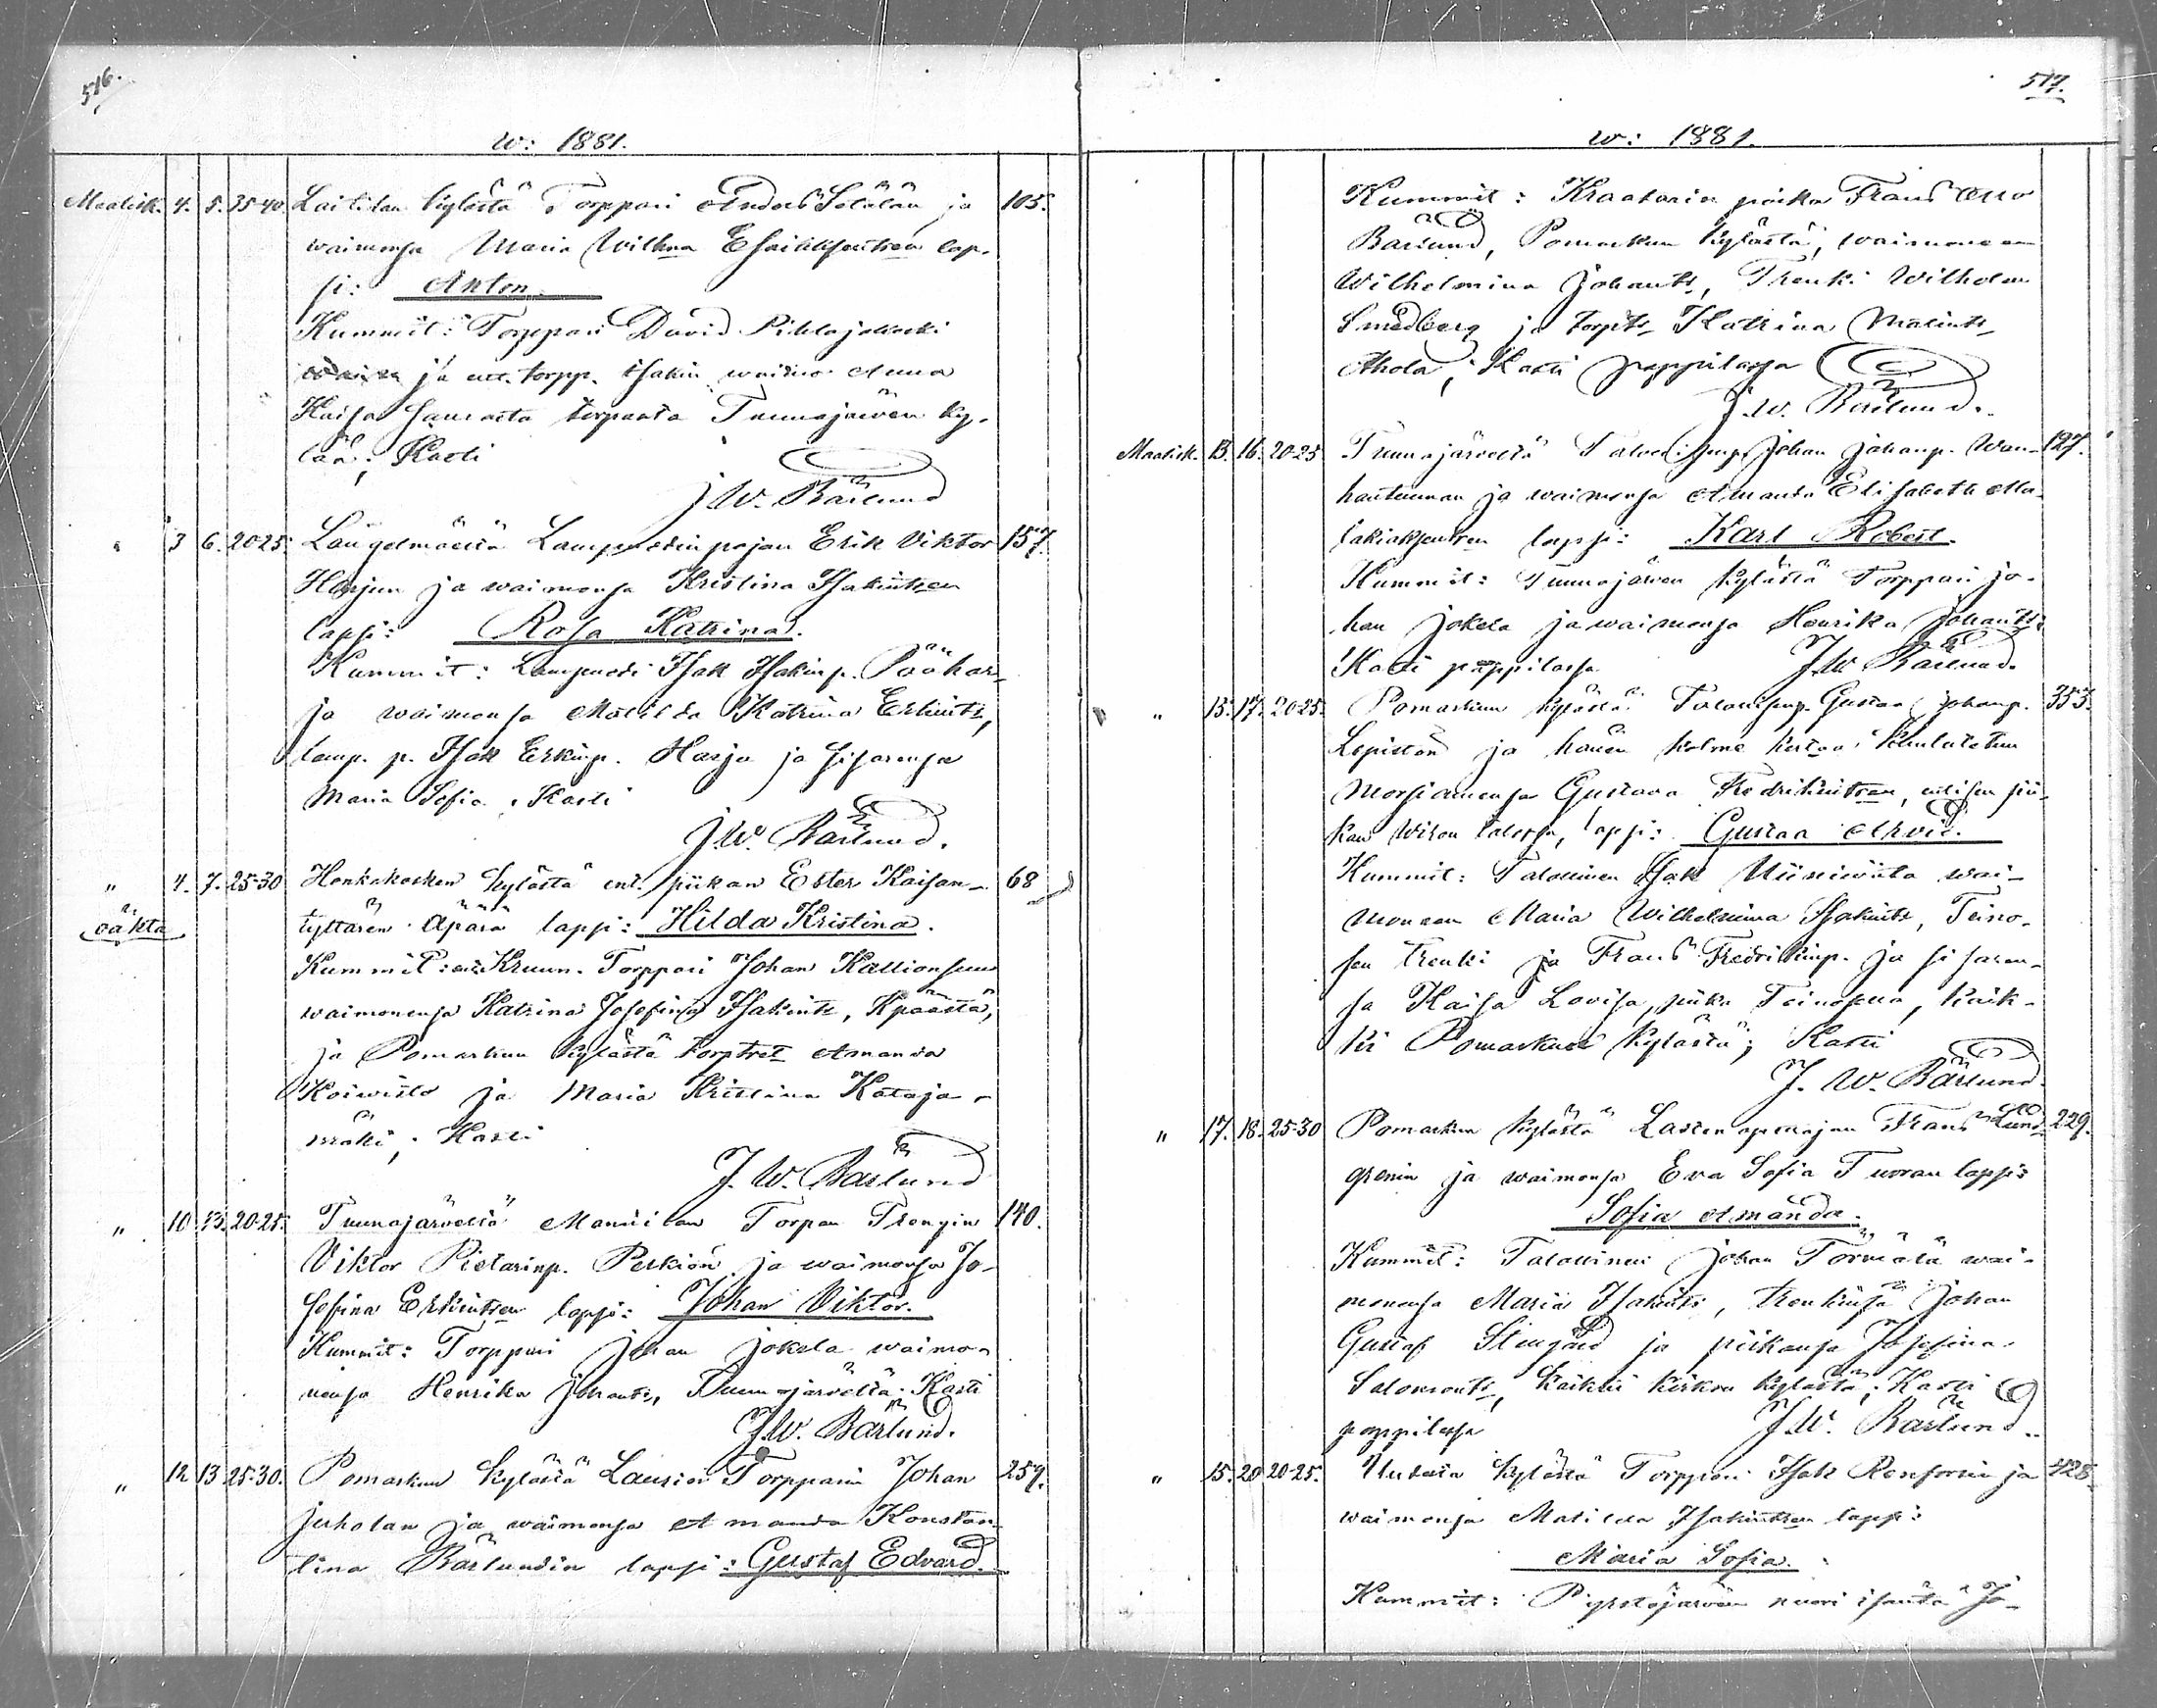 516.
w: 1881.
Maalisk. 4. 5. 35-40. Laitilan kylästä Torppari Anders Sotalan ja 105.
waimonsa Maria Wilhna Esaiaksentren lap-
si: Anton.
Kummit: Torppari David Pihlajakoski
ja ent. torpp. Isakin waimo Anna
Kaisa torpasta Tuunajärven ky-
lää; Kasti
J. W. Bärlund
" 3 6. 20-25. Längelmäeltä Lampuodin pojan Erik Viktor 157
Harjun ja waimonsa Kristina Isakintren
lapsi: Rosa Katrina.
Kummit: Lampuodi Isak Isakinp. Pööhar-
ja waimonsa Matilda Katrina Erkint.,
lamp. p. Isak Erkinp. Harju ja sisarensa
Maria Sofia. Kasti
J. W. Bärlund.
" 4. 7. 25-30 Honkakosken kylästä ent. piikan Ester Kaisan- 68
oäkta tyttären Äpärä lapsi: Hilda Kristina.
Kummit: Kruun. Torppari Johan Kallionsuun
waimonensa Katrina Josefina Isakint., Kpäästä,
ja Pomarkun kylästä torptret Amanda
Koiwisto ja Maria Kristina Kataja-
mäki; Kasti
J. W. Bärlund
" 10 13. 20-25. Tuunajärveltä Mannilan Torpan Trengin 140.
Viktor Pietarinp. Perkiön ja waimonsa Jo-
sefina Erkintren lapsi: Johan Viktor.
Kummit: Torppari Johan Jokela waimo-
nensa Henrika Johant., Tuunajärveltä; Kasti
J. W. Bärlund.
" 12 13 25-30. Pomarkun kylästä Torpparin Johan 259.
Juholan ja waimonsa Amanda Konstan-
tina Bärlundin lapsi: Gustaf Edvard.
517.
w: 1881.
Kummit: Kraatarin poika Frans Otto
Bärlund, Pomarkun kylästä, waimoneen
Wilhelmina Johant., Trenki Wilhelm
Smedberg ja torpt. Katrina Matint.
Ahola; Kasti pappilassa
J. W. Bärlund.
Maalisk. 13. 16. 20-25 Tuunajärveltä Johan Johanp. Wan- 127.
hantuunan ja waimonsa Amanda Elisabeth Ma-
lakiaksentren lapsi: Karl Robert.
Kummit: Tuunajärven kylästä Torppari Jo-
han Jokela ja waimonsa Henrika Johant.
Kasti pappilassa J. W. Bärlund.
" 15. 17. 20-25. Pomarkun kylästä Gustaa Johanp. 353.
Lepistön ja hänen kolme kertaa kuulutetun
Morsiamensa Gustava Fredrikintren, entisen pii-
kan talossa, lapsi: Gustaa Arvid.
Kummit: Talollinen Isak Uusiniitu wai-
moneen Maria Wilhelmina Isakint., Teino-
sen trenki ja Frans Fredrikinp. ja sisaren-
sa Kaisa Lovisa, piika Teinosen, kaik-
ki Pomarkun kylästä; Kasti
J. W. Bärlund.
" 17. 18. 25-30 Pomarkun kylästä Lasten opettajan Frans Lund- 229.
grenin ja waimonsa Eva Sofia Tuoran lapsi:
Sofia Amanda.
Kummit: Talollinen Johan Törmälä wai-
monensa Maria Isakint., trenkinsä Johan
Gustaf Stengård ja piikansa Josefina
Salomont., kaikki kirkon kylästä; Kasti
pappilassa J. W. Bärlund.
" 15. 20 20-25. kylästä Torppari Isak Renforsin ja 428
waimonsa Matilda Isakintren lapsi:
Maria Sofia.
Kummit: Pyrstöjärven nuori isäntä Jo-